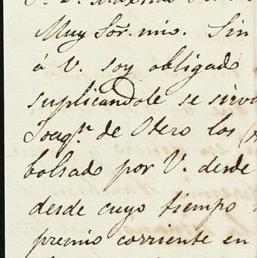 Muy Sor. mio. Sin
á V. soy obligado
suplicandole se sirva
Joaqn. de Otero los
bolsado por V. desde
desde cuyo tiempo
premio corriente en